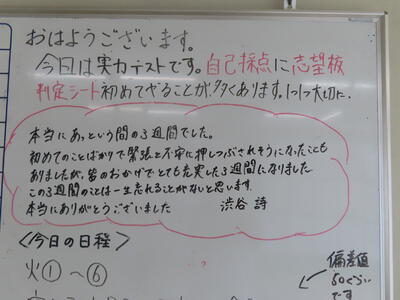 おはようございます。
今日は実力テストです。自己採点に志望校
判定シート初めてやることが多くあります。1つ1つ大切に。
本当にあっという間の3週間でした。
初めてのことばかりで緊張と不安に押しつぶされそうになったことも
ありましたが、皆のおかげでとても充実した3週間になりました
この3週間のことは一生忘れることがないと思います。
本当にありがとうございました 渋谷 詩
<今日の日程>
火① ~ ⑥
偏差値
50ぐらい
です